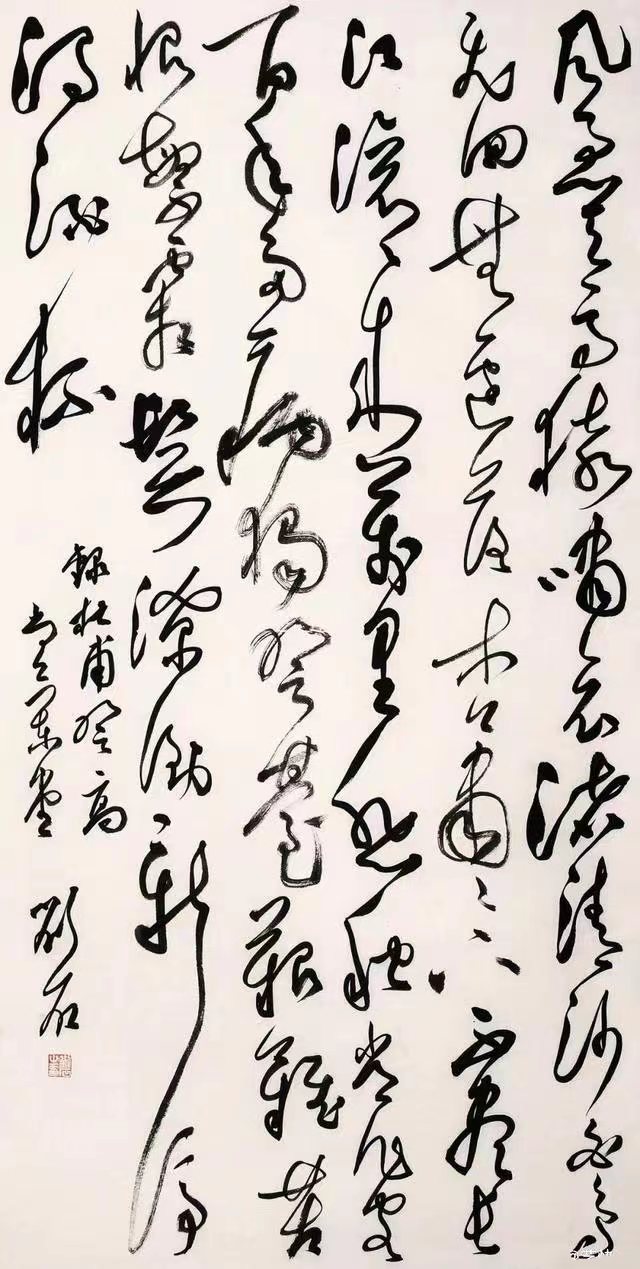 風急天高猿嘯哀渚清沙白鳥
飛回無邊落木蕭蕭下不盡長
江滾滾來萬里悲秋常作客
百年多病獨登臺艱難苦
恨繁霜鬢潦倒新停
濁酒杯
錄杜甫登高
石